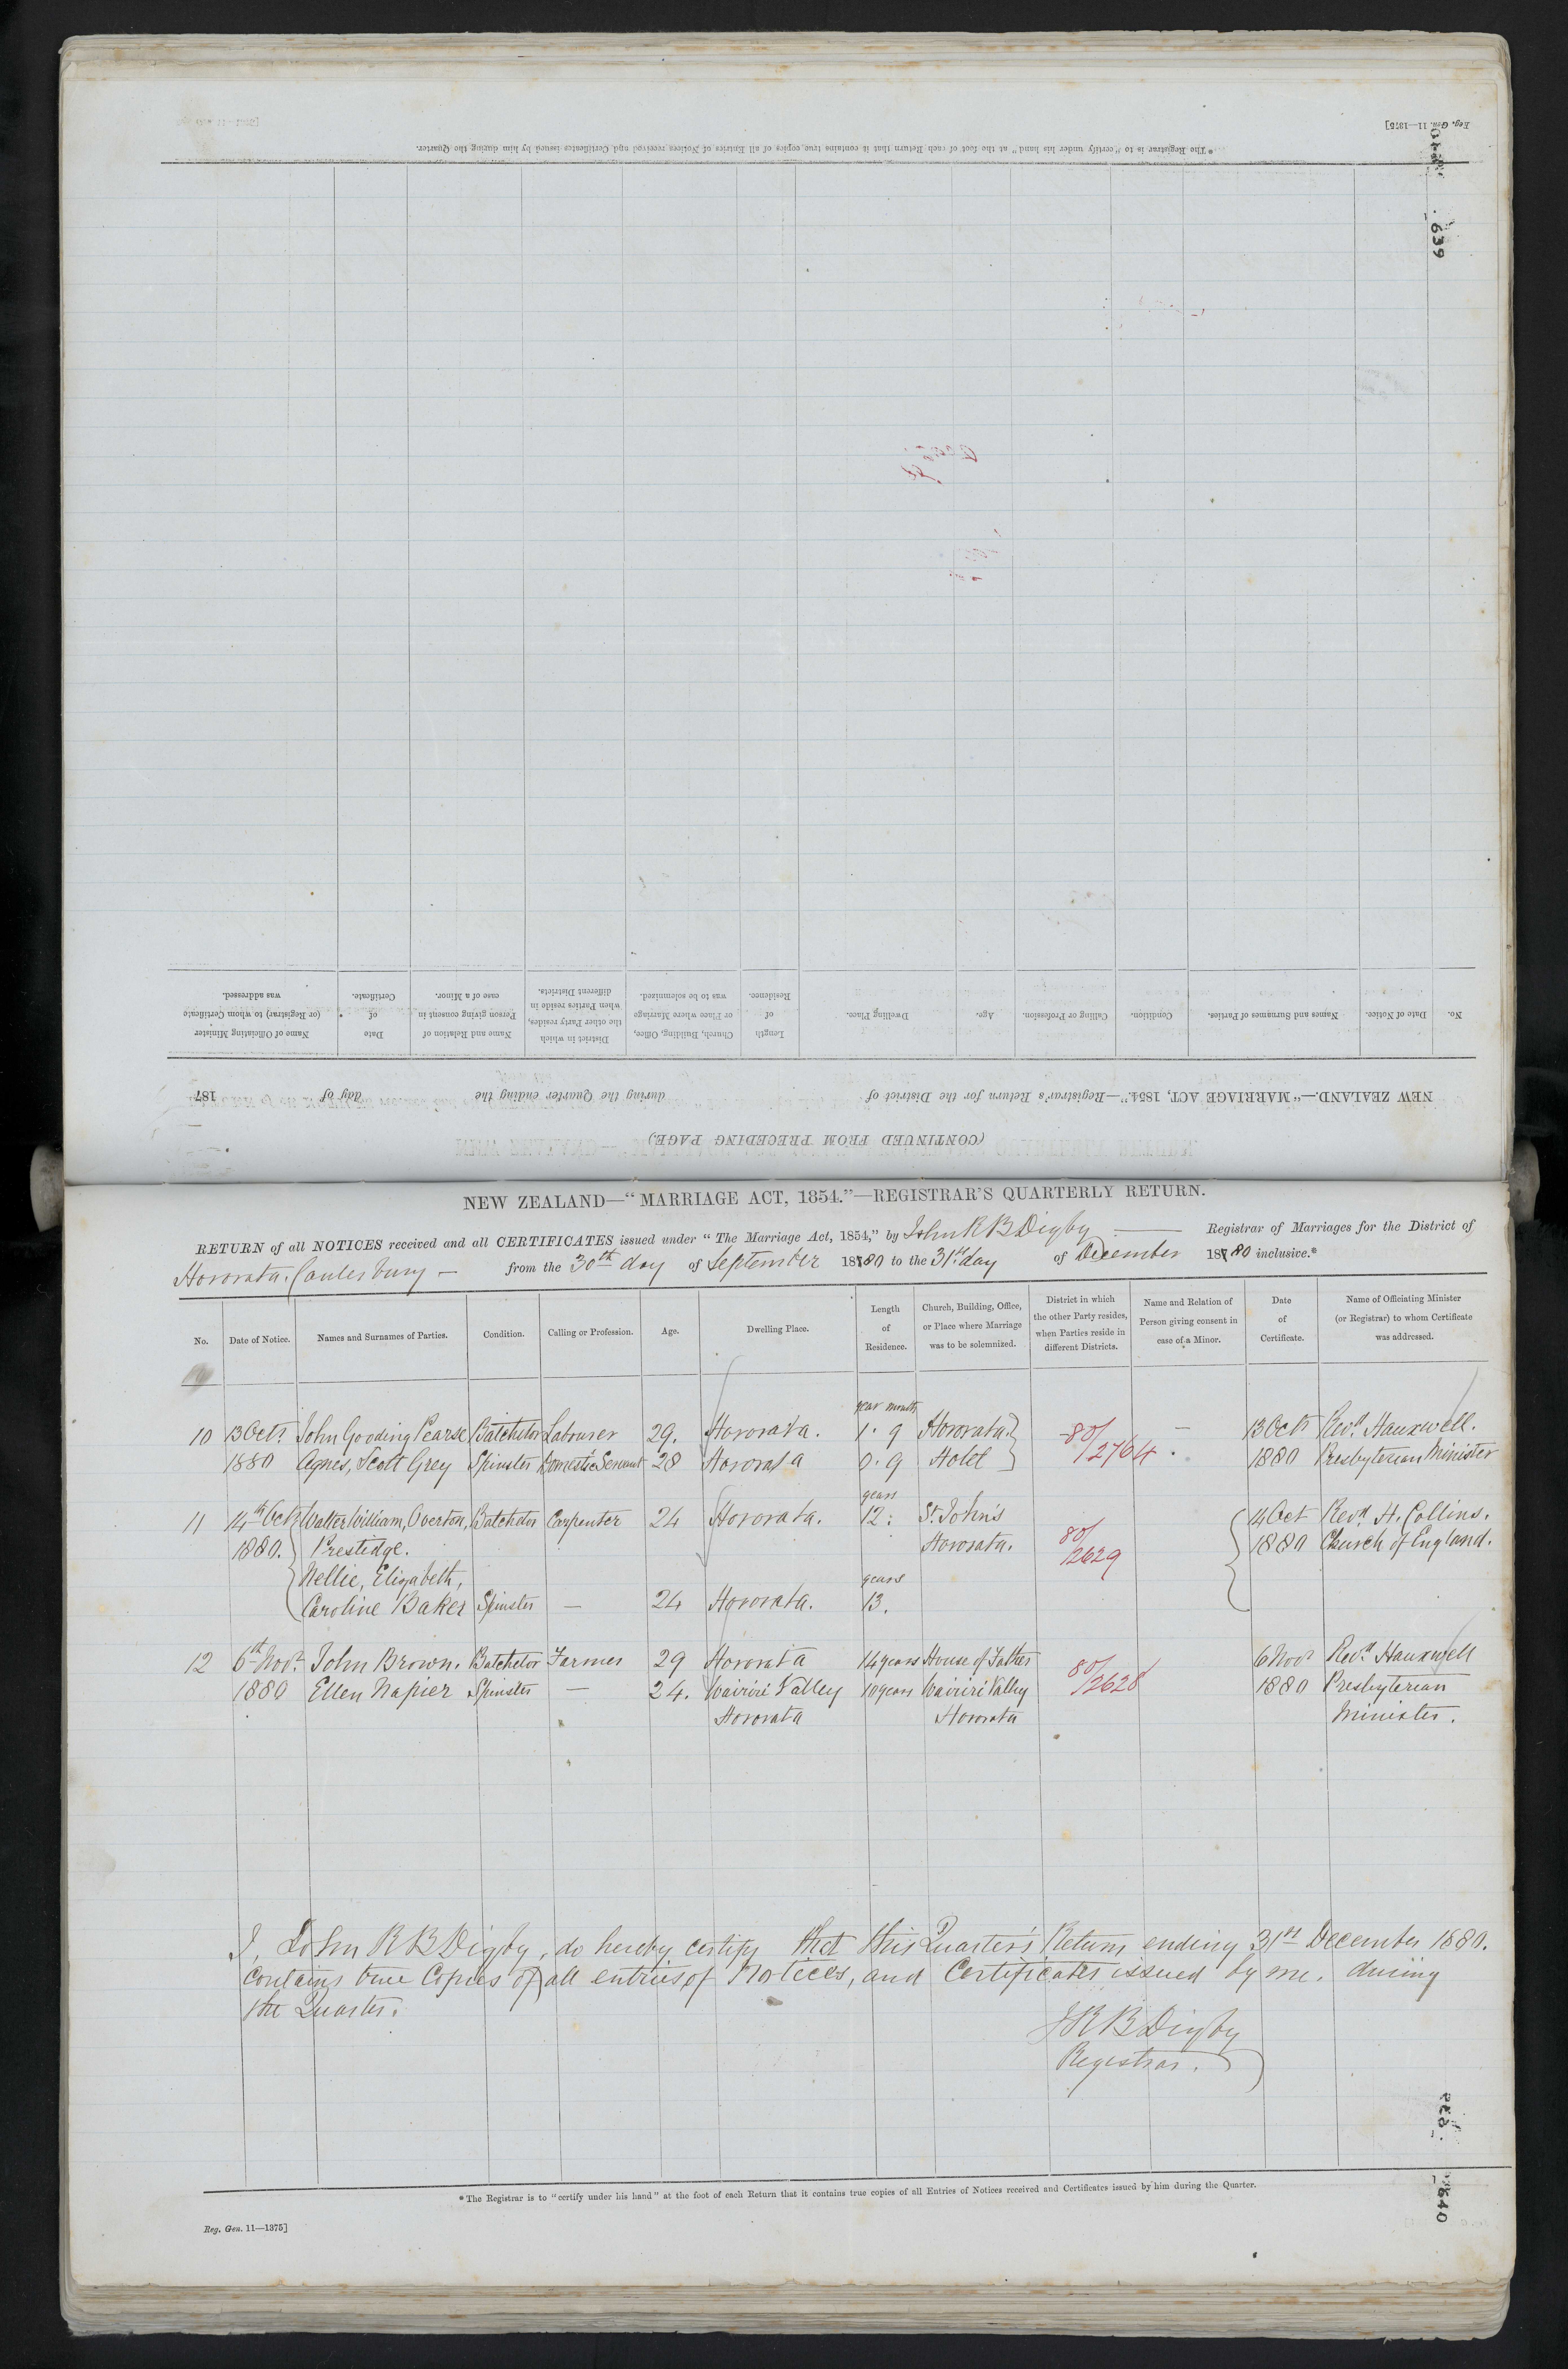 Reg. Gen. 11—1375]
*The Registrar is to "certify under his hand" at the foot of each Return that it contains true copies of all Entries of Notices received and Certificates issued by him during the Quarter.
639
No.
Date of Notice.
Names and Surnames of Parties.
Condition.
Calling or Profession.
Age.
Dwelling Place.
Length of Residence.
Church, Building, Office, or Place where Marriage was to be solemnized.
District in which the other Party resides, when Parties reside in different Districts.
Name and Relation of Person giving consent in case of a Minor.
Date of Certificate.
Name of Officiating Minister (or Registrar) to whom Certificate was addressed.
NEW ZEALAND.—"MARRIAGE ACT, 1854."—Registrar's Return for the District of during the Quarter ending the day of 187
(CONTINUED FROM PRECEDING PAGE.)
NEW ZEALAND—"MARRIAGE ACT, 1854."—REGISTRAR'S QUARTERLY RETURN.
RETURN of all NOTICES received and all CERTIFICATES issued under "The Marriage Act, 1854," by John R B Digby — Registrar of Marriages for the District of
Hororata, Canterbury — from the 30th day of September 1880 to the 31st day of December 1880 inclusive.*
No.
Date of Notice.
Names and Surnames of Parties.
Condition.
Calling or Profession.
Age.
Dwelling Place.
Length
of
Residence.
Church, Building, Office,
or Place where Marriage
was to be solemnized.
District in which
the other Party resides,
when Parties reside in
different Districts.
Name and Relation of
Person giving consent in
case of a Minor.
Date
of
Certificate.
Name of Officiating Minister
(or Registrar) to whom Certificate
was addressed.
year month
10 13 Octr. John Gooding Pearse Batchelor Labourer 29. Hororata. 1. 9 Hororata. 80/ — 13 Octr Revd. Hauxwell.
1880 Agnes, Scott Grey Spinster Domestic Servant 28 Hororata 0. 9 Hotel /2764 1880 Presbyterian Minister
years
11 14th Octr Walter William, Overton, Batchelor Carpenter 24 Hororata. 12: St. John's 14 Oct Revd H. Collins.
1880. Prestidge. Hororata. 80/2629 1880 Church of England.
Nellie, Elizabeth, years
Caroline Baker Spinster — 24 Hororata. 13.
12 6th Novr. John Brown. Batchelor Farmer 29 Hororata 14 years House of Father 80/ 6 Novr Revd. Hauxwell
1880 Ellen Napier Spinster — 24. Wairiri Valley 10 years Wairiri Valley /2628 1880 Presbyterian
Hororata Hororata Minister.
I, John R B Digby, do hereby certify that this Quarter's Return ending 31st December 1880.
contains true Copies of all entries of Notices, and Certificates issued by me. during
the Quarter.
J R B Digby
Registrar.
*The Registrar is to "certify under his hand" at the foot of each Return that it contains true copies of all Entries of Notices received and Certificates issued by him during the Quarter.
Reg. Gen. 11—1375]
640